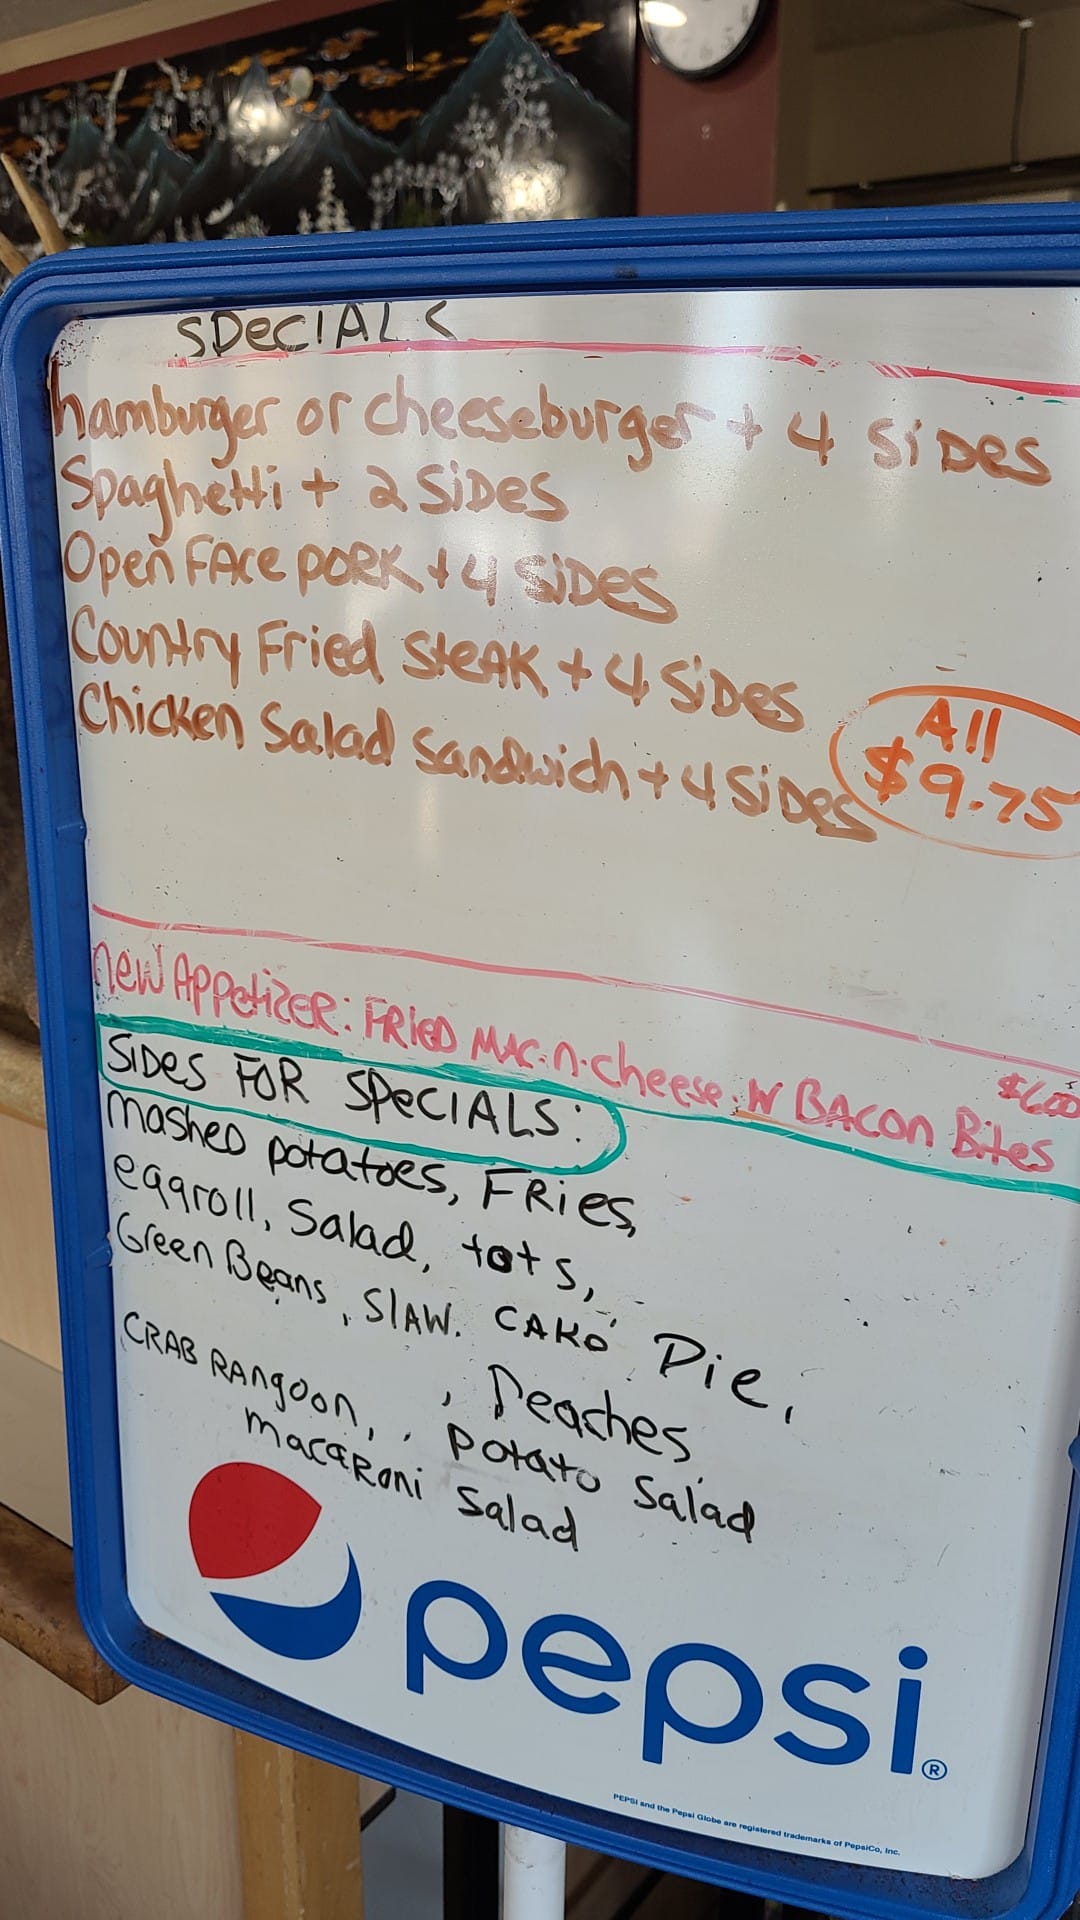 SPeCIALS
hamburger or cheeseburger + 4 SiDes
Spaghetti + 2 SiDes
Open FAce PORK + 4 SiDes
Country Fried SteAK + 4 SiDes
Chicken Salad Sandwich + 4 SiDes
All
$9.75
new APPetizeR: FRieD MAC.n.cheese.W BACon Bites
$6.00
SiDes FOR SPeCIALS:
masheD potatoes, FRies,
eggroll, Salad, tots,
Green Beans, SlAW. CAKe Pie,
CRAB RAngoon, , Peaches,
Potato Salad
macaRoni Salad
pepsi®
PEPSI and the Pepsi Globe are registered trademarks of PepsiCo, Inc.